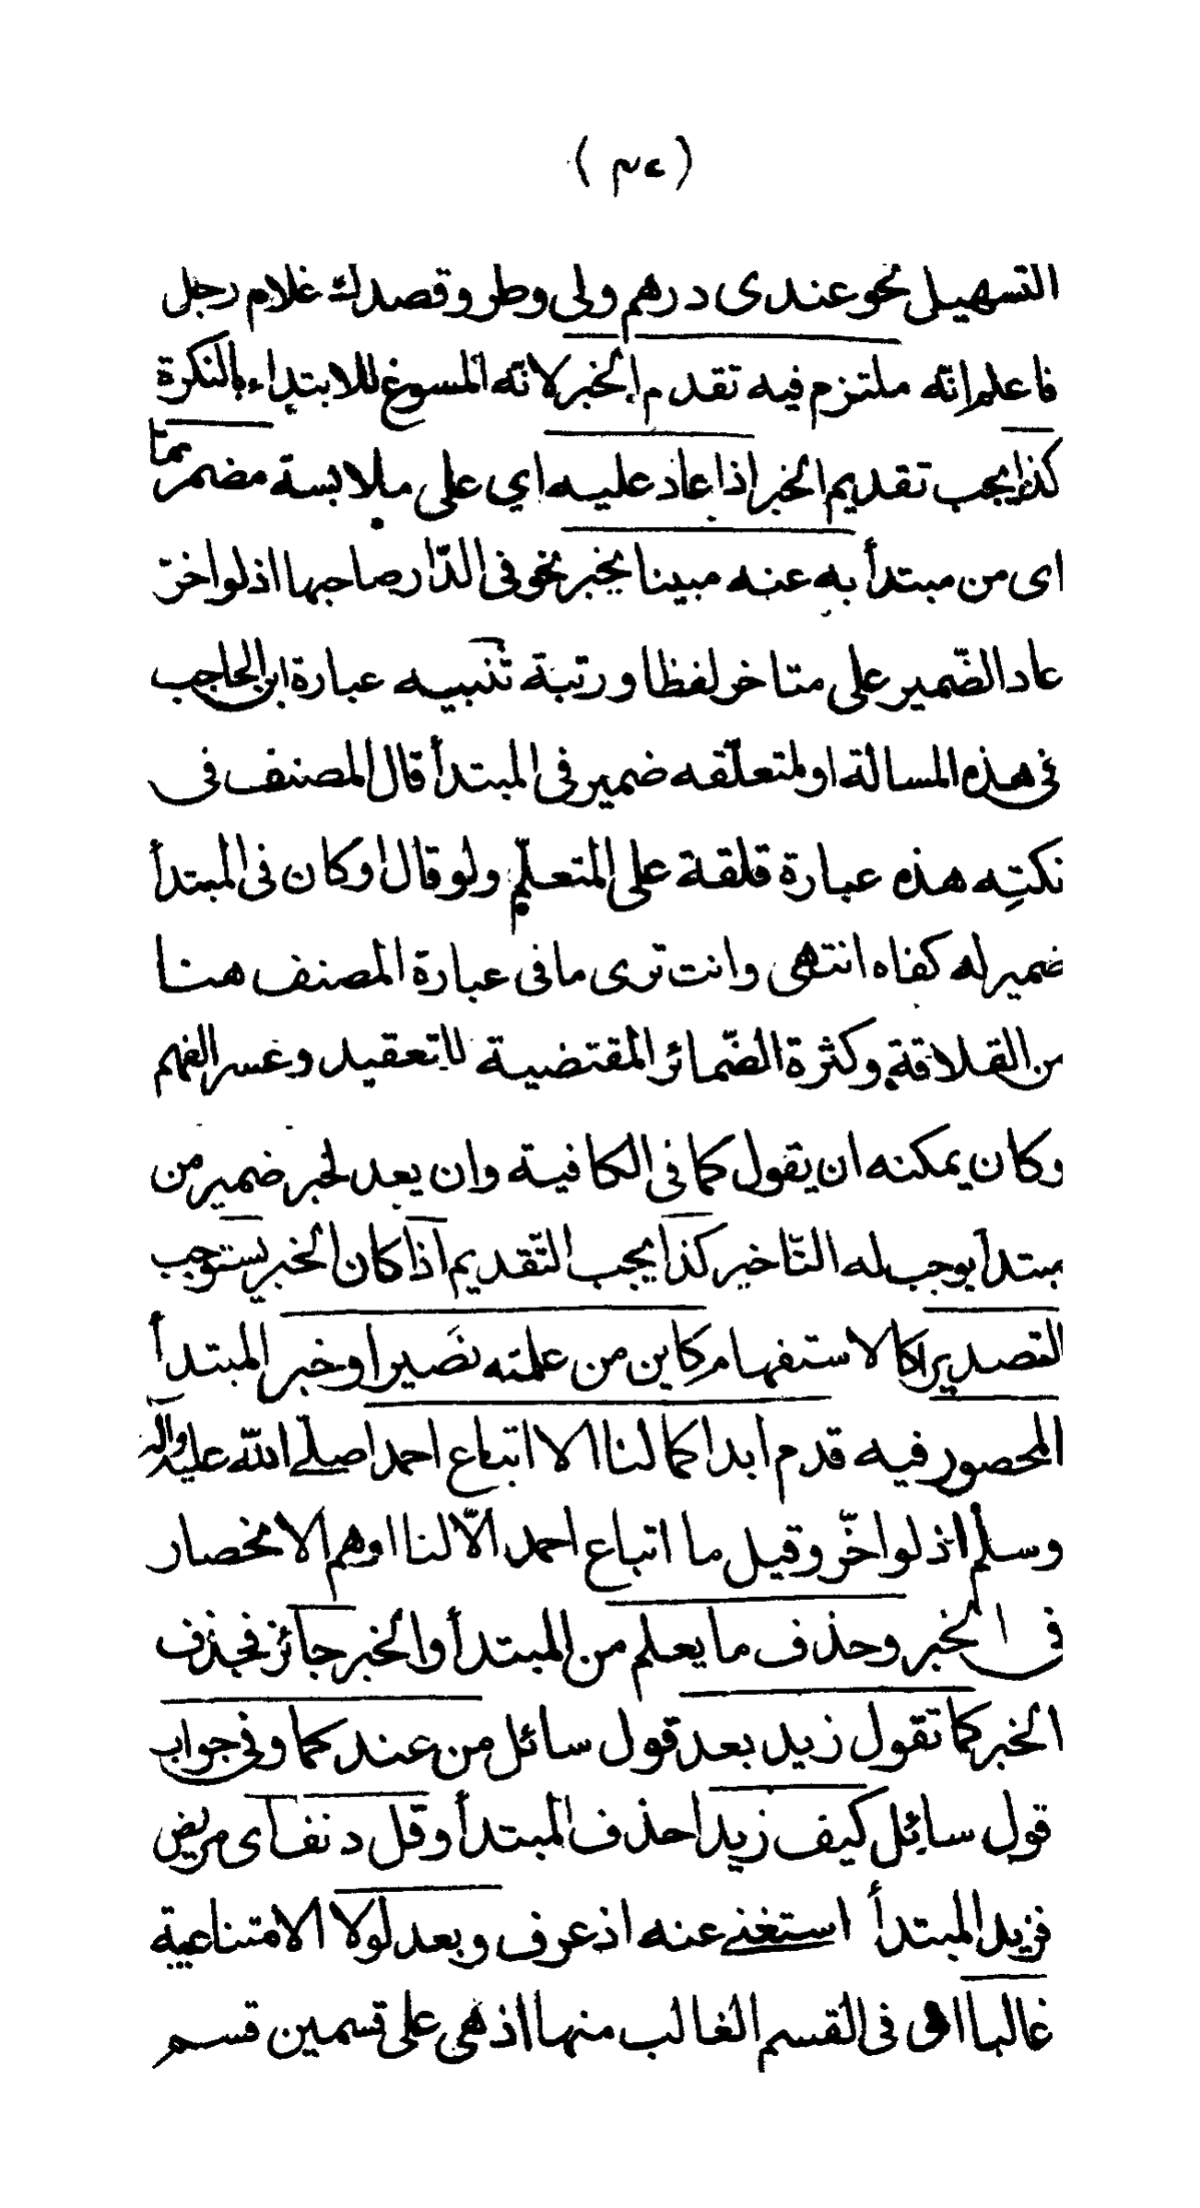 التسهيل نحو عندى درهم ولى وطر وقصدك غلام رجل
فاعلم انّه ملتزم فيه تقدم الخبر لانّه المسوغ للابتداء بالنكرة
كذا يجب تقديم الخبر اذا عاد عليه اي على ملابسة مضمر ممّا
اى من مبتدأ به عنه مبينا يخبر نحو فى الدّار صاحبها اذ لو اخرّ
عاد الضّمير على متاخر لفظا ورتبة تنبيه عبارة ابن الحاجب
فى هذه المسالة او لمتعلّقه ضمير فى المبتدأ قال المصنف فى
نكتِه هذه عبارة قلقة على المتعلّم ولو قال او كان فى المبتدأ
ضمير له كفاه انتهى وانت ترى ما فى عبارة المصنف هنا
من القلاقة وكثرة الضّمائر المقتضية للتعقيد وعسر الفهم
وكان يمكنه ان يقول كما فى الكافية وان يعد لخبر ضمير من
مبتدأ يوجب له التّاخير كذا يجب التّقديم اذا كان الخبر يستوجب
التصديرا كالاستفهام كاين من علمته نصَيرا وخبر المبتدأ
المحصور فيه قدم ابدا كما لنا الا اتباع احمدا صلى الله عليه وآله
وسلم اذ لو اخّر وقيل ما اتباع احمد الّا لنا اوهم الانحصار
فى الخبر وحذف ما يعلم من المبتدأ والخبر جائز فحذف
الخبر كما تقول زيد بعد قول سائل من عندكما وفى جواب
قول سائل كيف زيد احذف المبتدأ وقل دنف اى مريض
فزيد المبتدأ استغنى عنه اذ عرف وبعد لولا الامتناعية
غالبا اى فى القسم الغالب منها اذ هى على قسمين قسم